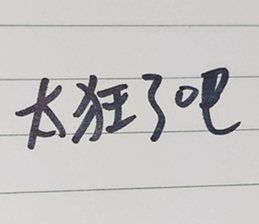 太狂了吧